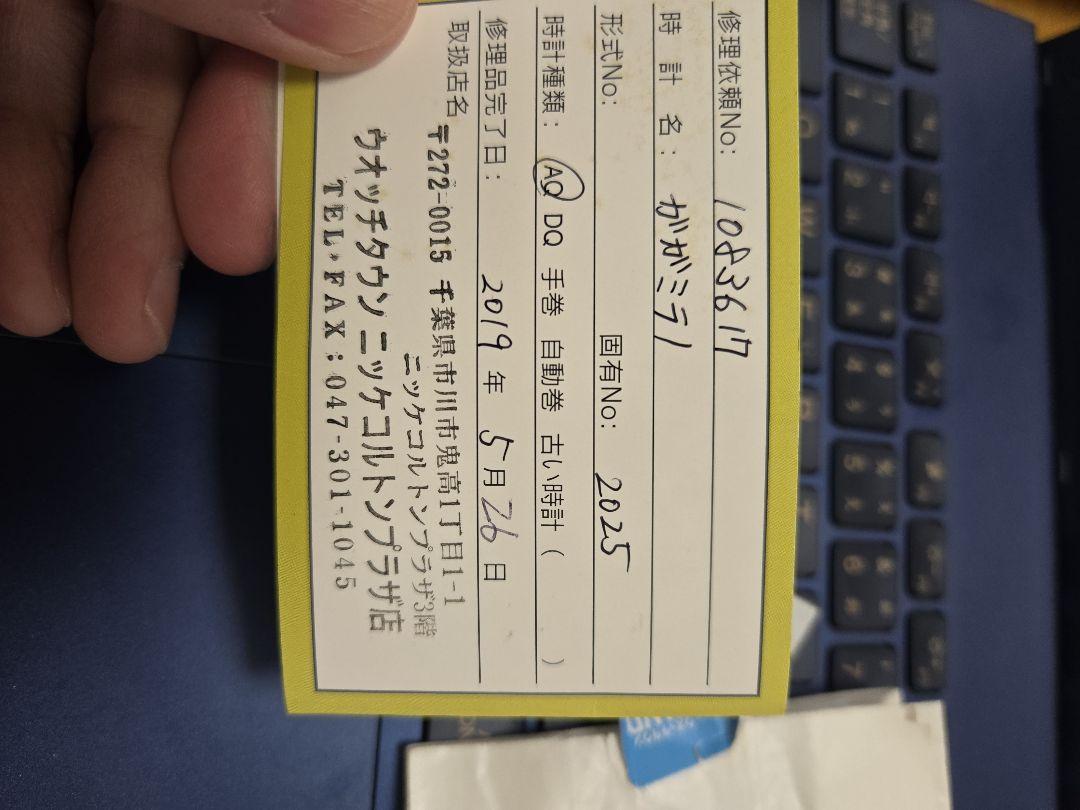 修理依頼No: 1083617
時計名: ガガミラノ
形式No: 固有No: 2025
時計種類: AQ DQ 手巻 自動巻 古い時計 ( )
修理品完了日: 2019年 5月26日
取扱店名
〒272-0015 千葉県市川市鬼高1丁目1-1
ニッケコルトンプラザ3階
ウオッチタウン ニッケコルトンプラザ店
TEL・FAX:047-301-1045